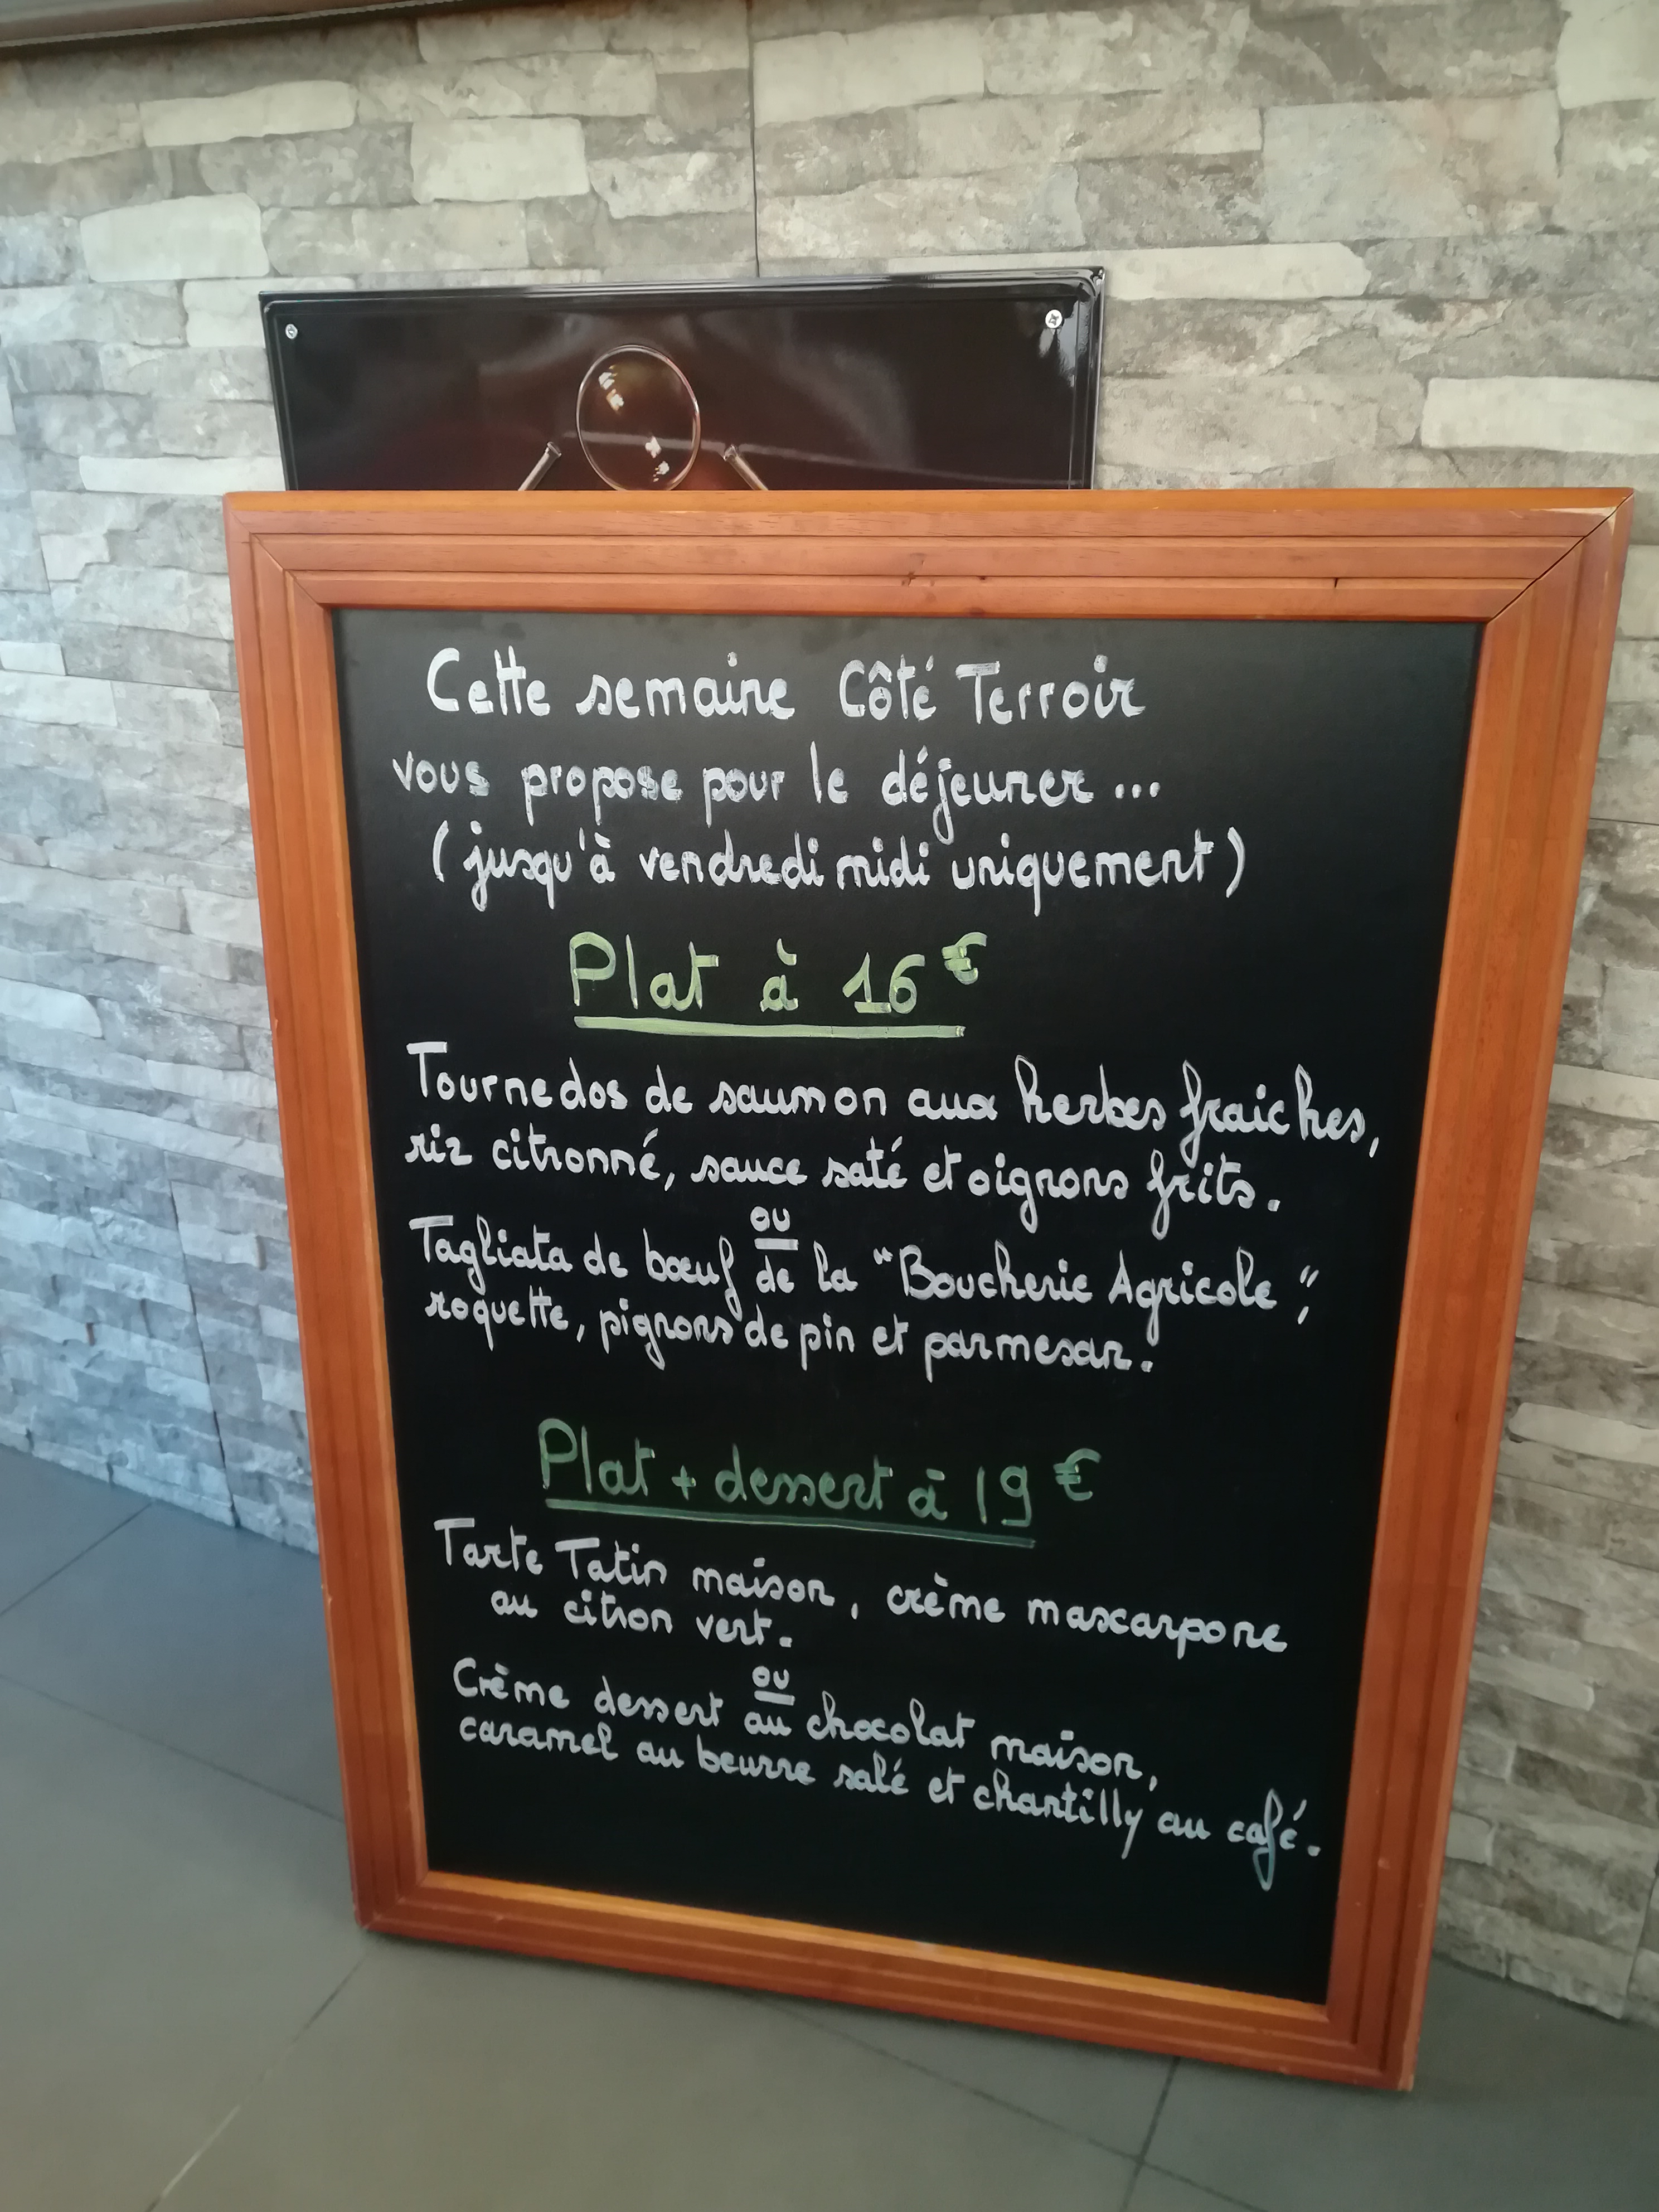 Cette semaine Côté Terroir
vous propose pour le déjeuner...
(jusqu'à vendredi midi uniquement)
Plat à 16€
Tournedos de saumon aux herbes fraiches,
riz citronné, sauce saté et oignons frits.
ou
Tagliata de bœuf de la "Boucherie Agricole",
roquette, pignons de pin et parmesan.
Plat + dessert à 19€
Tarte Tatin maison, crème mascarpone
au citron vert.
ou
Crème dessert au chocolat maison,
caramel au beurre salé et chantilly au café.